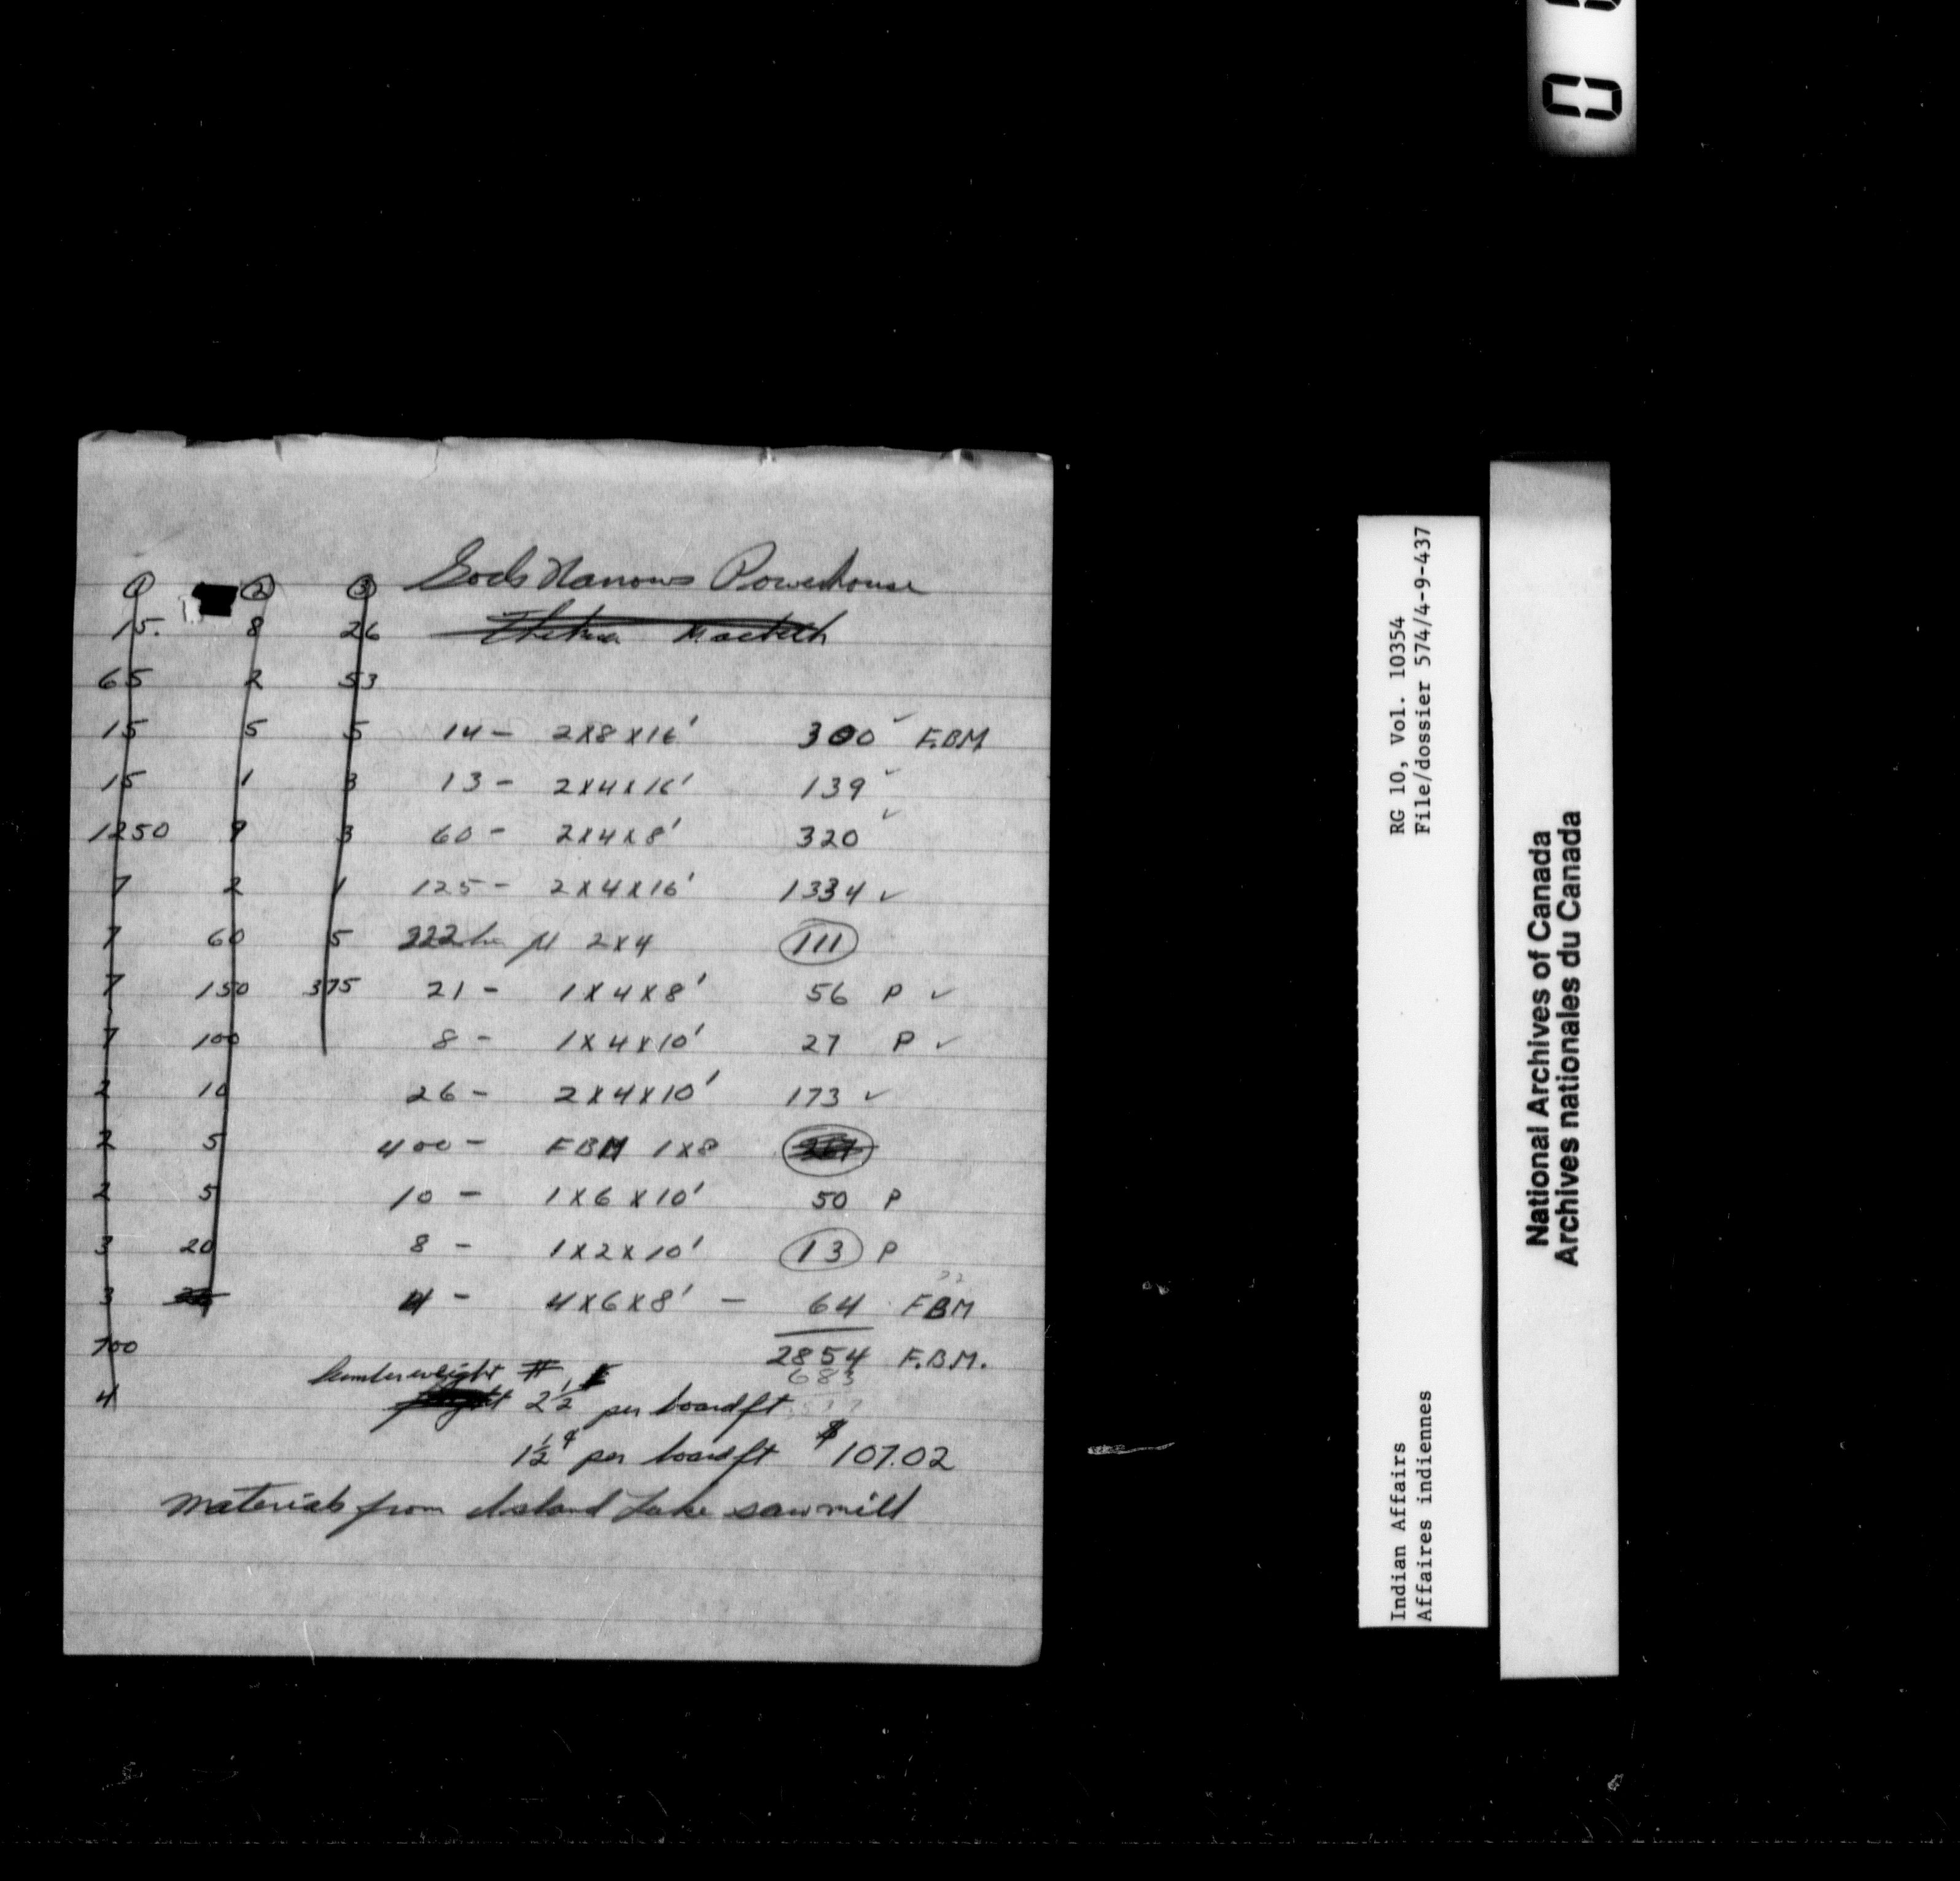 Gods Narrows Powerhouse
① ② ③
15. 8 26
65 2 53
15 5 5 14 - 2x8x16' 300 ✓ F.B.M
15 1 3 13 - 2x4x16' 139 ✓
1250 9 3 60 - 2x4x8' 320 ✓
7 2 1 125 - 2x4x16' 1334 ✓
7 60 5 222 2x4 111
7 150 375 21 - 1x4x8' 56 P ✓
7 100 8 - 1x4x10' 27 P ✓
2 10 26 - 2x4x10' 173 ✓
2 5 400 - FBM 1x8
2 5 10 - 1x6x10' 50 P
3 20 8 - 1x2x10' 13 P
3 4 - 4x6x8' - 64 FBM
700 2854 F.B.M.
683
Lumber weight #
4 2½ per board ft
1½¢ per board ft $107.02
Materials from Island Lake sawmill
RG 10, Vol. 10354
File/dossier 574/4-9-437
Indian Affairs
Affaires indiennes
National Archives of Canada
Archives nationales du Canada